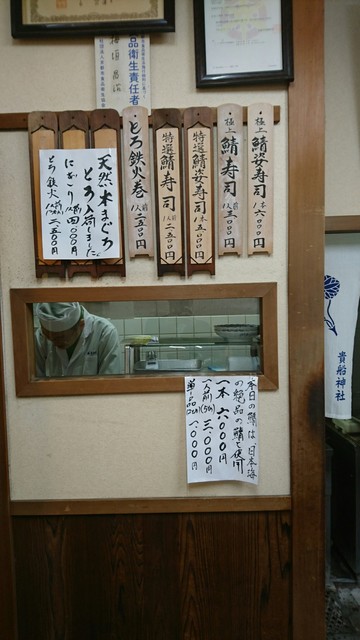 品衛生責任者
極上鯖姿寿司 一本 六〇〇〇円
極上鯖寿司 一人前 三〇〇〇円
特選鯖姿寿司 一本 五〇〇〇円
特選鯖寿司 一人前 二五〇〇円
とろ鉄火巻 一人前 二五〇〇円
天然本まぐろ
とろ入荷しました
にぎり 一人前 四〇〇〇円
とろ鉄火 一人前 二五〇〇円
本日の鯖は、日本海
の絶品の鯖を使用
一本 六〇〇〇円
一人前(5カン) 三、〇〇〇円
一、〇〇〇円
貴船神社